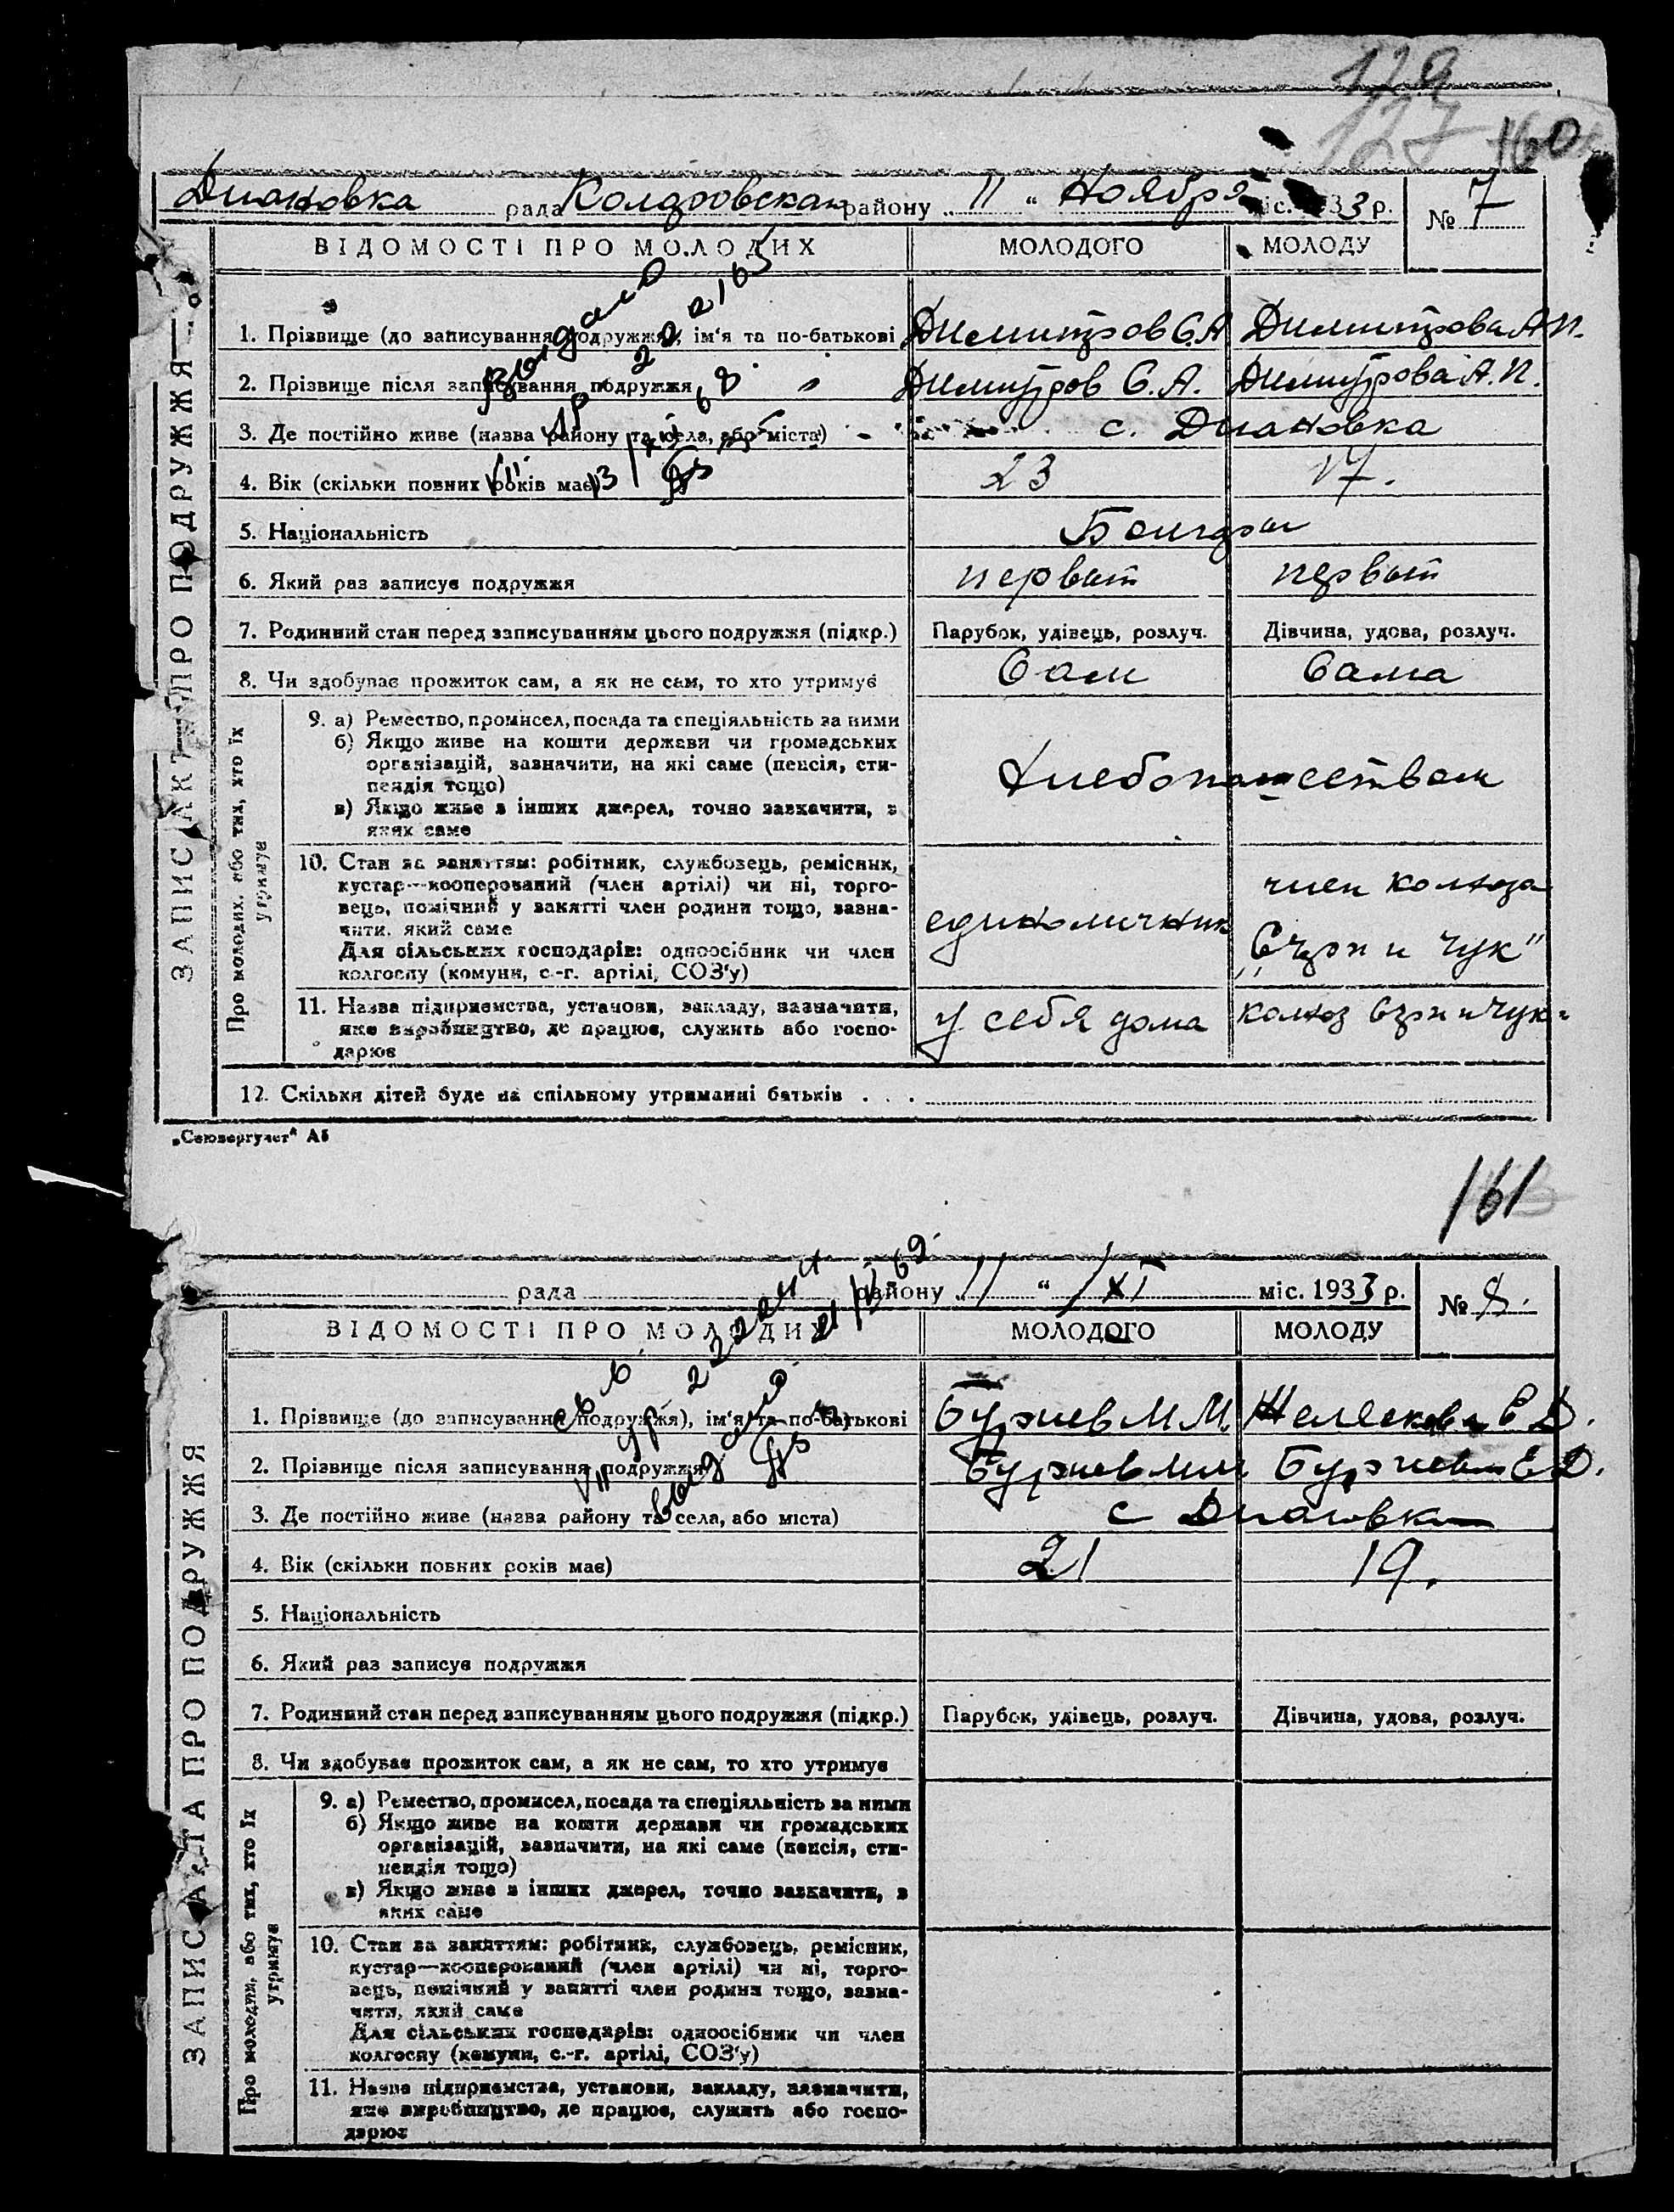 129
127 160
Диановка рада Коларовская району „11 “ Ноября міс. 1933 р. № 7
ВІДОМОСТІ ПРО МОЛОДИХ МОЛОДОГО МОЛОДУ
1. Прізвище (до записування подружжя), ім'я та по-батькові Димитров С.А Димитрова А.И.
2. Прізвище після записування подружжя Димитров С.А. Димитрова А.И.
3. Де постійно живе (назва району та села, або міста) с. Диановка
4. Вік (скільки повних років має) 23 17.
5. Національність Болгары
6. Який раз записує подружжя первый первый
7. Родинний стан перед записуванням цього подружжя (підкр.) Парубок, удівець, розлуч. Дівчина, удова, розлуч.
8. Чи здобуває прожиток сам, а як не сам, то хто утримує Сам Сама
9. а) Ремество, промисел, посада та спеціяльність за ними
б) Якщо живе на кошти держави чи громадських
організацій, зазначити, на які саме (пенсія, сти-
пендія тощо) Хлебопашеством
в) Якщо живе з інших джерел, точно зазначити, з
яких саме
10. Стан за заняттям: робітник, службовець, ремісник,
кустар—кооперований (член артілі) чи ні, торго- член колхоза
вець, помічний у занятті член родини тощо, зазна- единоличник
чити, який саме „Сърп и чук"
Для сільських господарів: одноосібник чи член
колгоспу (комуни, с.-г. артілі, СОЗ'у)
11. Назва підприємства, установи, закладу, зазначити, у себя дома колхоз Сърп и Чук
яке виробництво, де працює, служить або госпо-
дарює
12. Скільки дітей буде на спільному утриманні батьків . . .
ЗАПИС АКТА ПРО ПОДРУЖЖЯ
Про молодих, або тих, хто їх
утримує
„Союзоргучет" А5
161
рада району „11 “ XI міс. 1933 р. № 8.
ВІДОМОСТІ ПРО МОЛОДИХ МОЛОДОГО МОЛОДУ
1. Прізвище (до записування подружжя), ім'я та по-батькові М.М. Е Д.
2. Прізвище після записування подружжя Е Д.
3. Де постійно живе (назва району та села, або міста) с Диановка
4. Вік (скільки повних років має) 21 19.
5. Національність
6. Який раз записує подружжя
7. Родинний стан перед записуванням цього подружжя (підкр.) Парубок, удівець, розлуч. Дівчина, удова, розлуч.
8. Чи здобуває прожиток сам, а як не сам, то хто утримує
9. а) Ремество, промисел, посада та спеціяльність за ними
б) Якщо живе на кошти держави чи громадських
організацій, зазначити, на які саме (пенсія, сти-
пендія тощо)
в) Якщо живе з інших джерел, точно зазначити, з
яких саме
10. Стан за заняттям: робітник, службовець, ремісник,
кустар—кооперований (член артілі) чи ні, торго-
вець, помічний у занятті член родини тощо, зазна-
чити, який саме
Для сільських господарів: одноосібник чи член
колгоспу (комуни, с.-г. артілі, СОЗ'у)
11. Назва підприємства, установи, закладу, зазначити,
яке виробництво, де працює, служить або госпо-
дарює
ЗАПИС АКТА ПРО ПОДРУЖЖЯ
Про молодих, або тих, хто їх
утримує